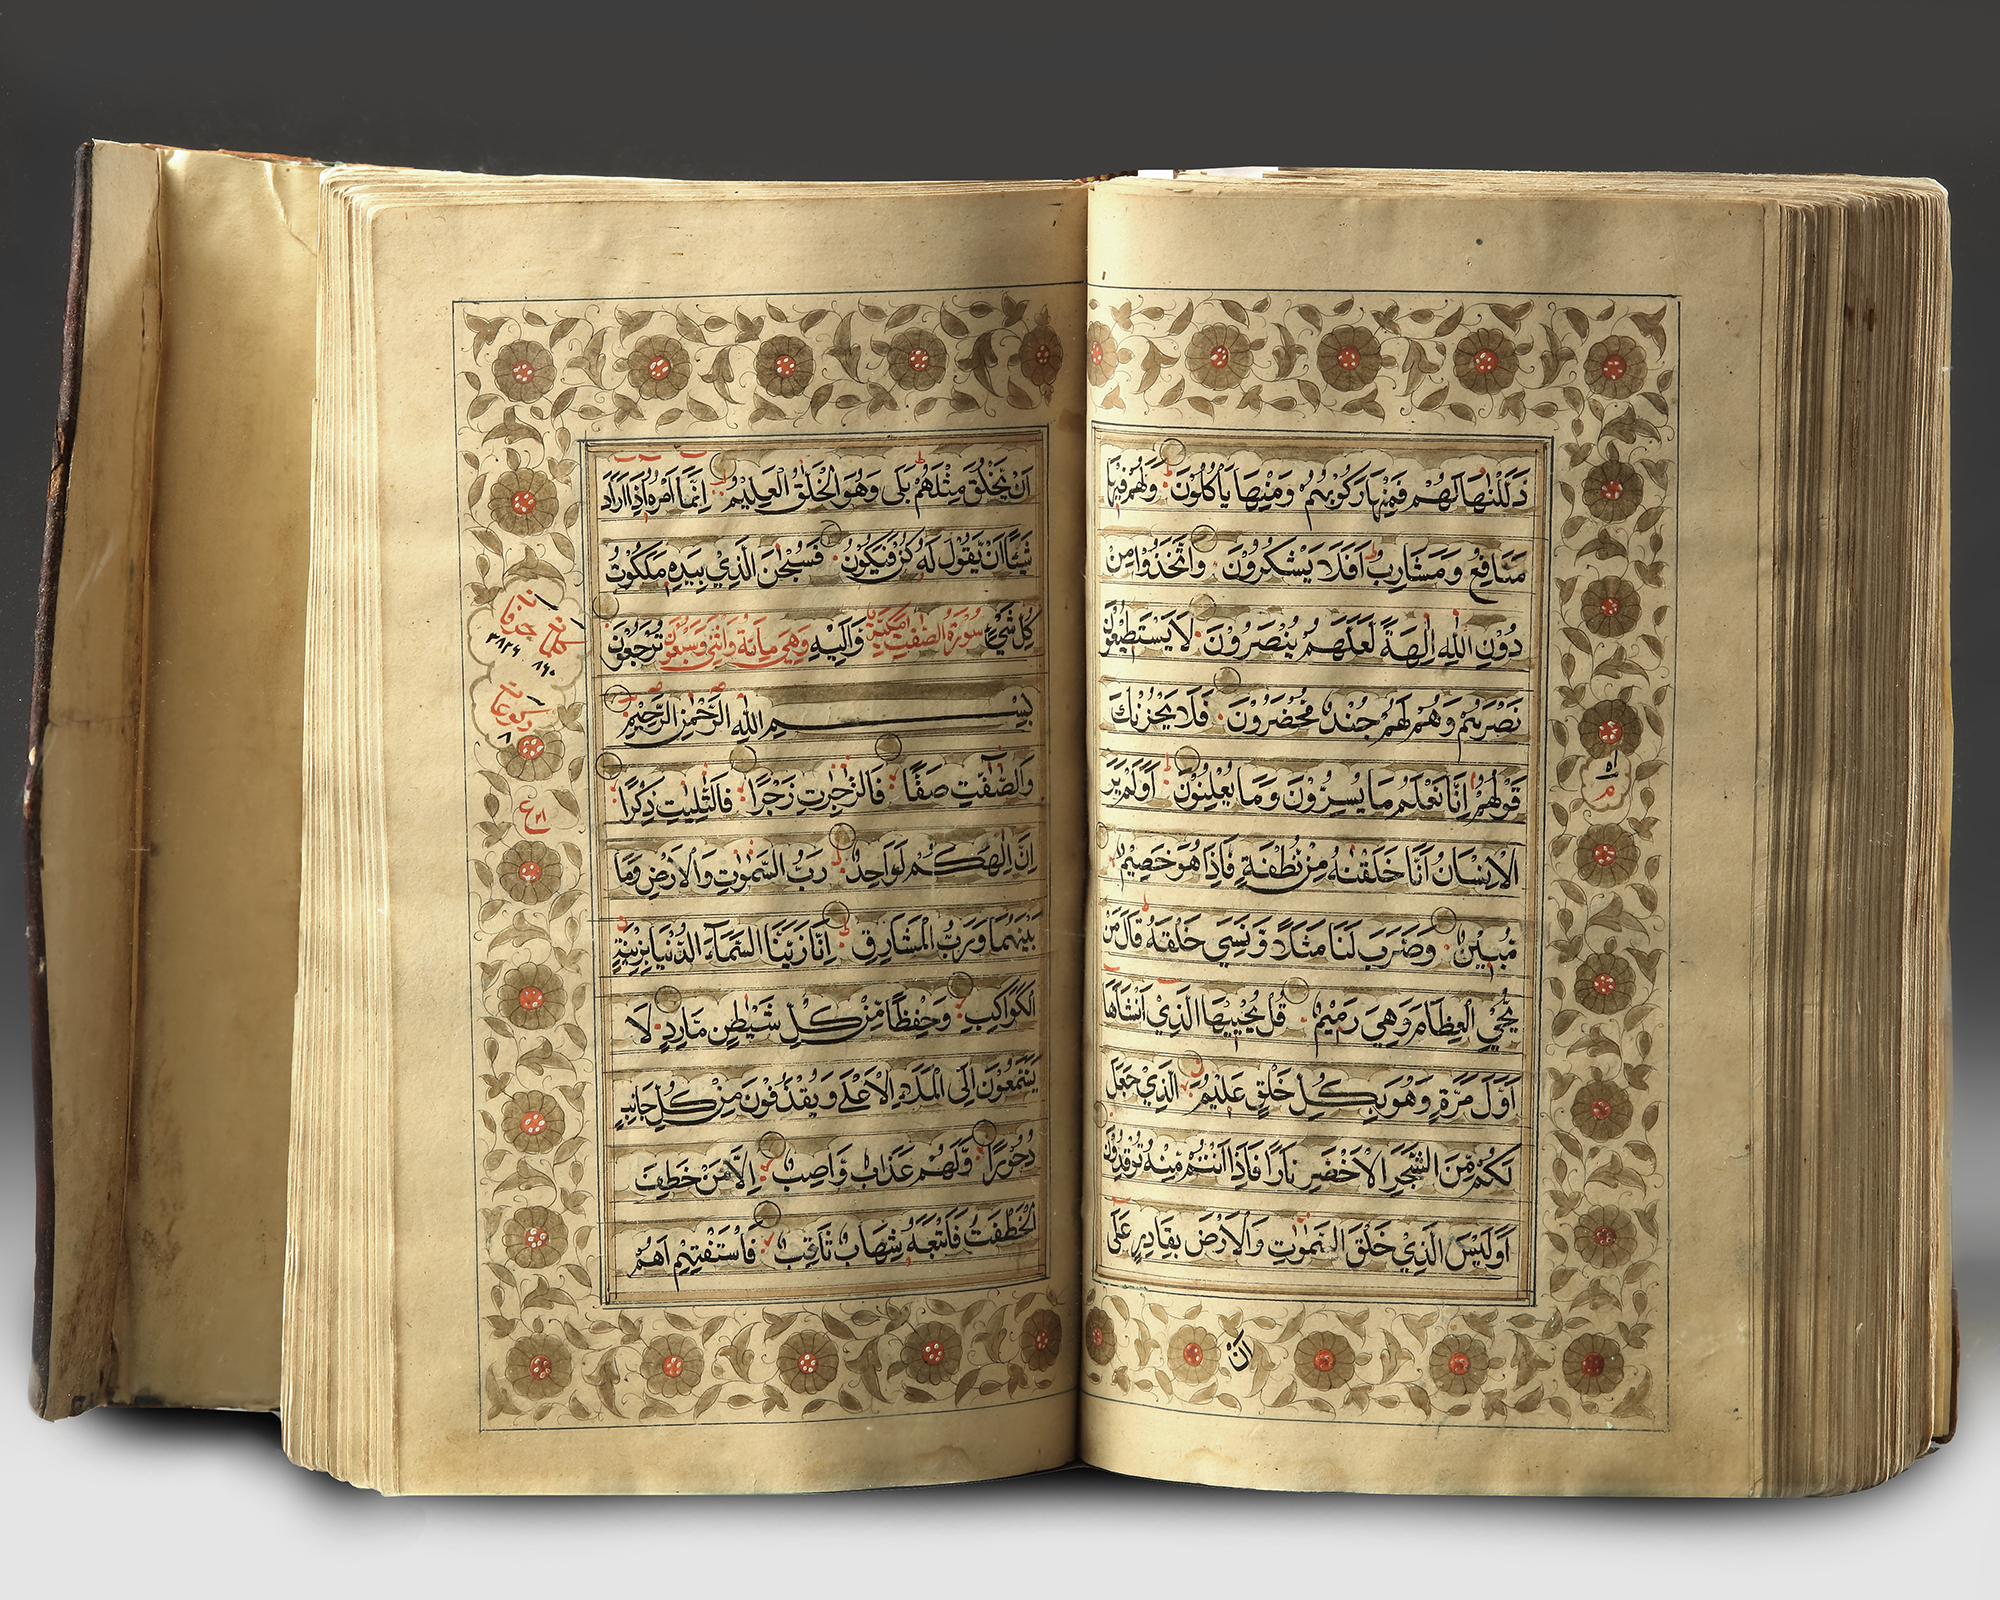 ذَلَّلْنٰهَا لَهُمْ فَمِنْهَا رَكُوْبُهُمْ وَمِنْهَا يَاْكُلُوْنَ وَلَهُمْ فِيْهَا
مَنَافِعُ وَمَشَارِبُ اَفَلَا يَشْكُرُوْنَ وَاتَّخَذُوْا مِنْ
دُوْنِ اللّٰهِ اٰلِهَةً لَعَلَّهُمْ يُنْصَرُوْنَ لَا يَسْتَطِيْعُوْنَ
نَصْرَهُمْ وَهُمْ لَهُمْ جُنْدٌ مُحْضَرُوْنَ فَلَا يَحْزُنْكَ
قَوْلُهُمْ اِنَّا نَعْلَمُ مَا يُسِرُّوْنَ وَمَا يُعْلِنُوْنَ اَوَلَمْ يَرَ
الْاِنْسَانُ اَنَّا خَلَقْنٰهُ مِنْ نُطْفَةٍ فَاِذَا هُوَ خَصِيْمٌ
مُبِيْنٌ وَضَرَبَ لَنَا مَثَلًا وَنَسِيَ خَلْقَهُ قَالَ مَنْ
يُحْيِ الْعِظَامَ وَهِيَ رَمِيْمٌ قُلْ يُحْيِيْهَا الَّذِيْ اَنْشَاَهَا
اَوَّلَ مَرَّةٍ وَهُوَ بِكُلِّ خَلْقٍ عَلِيْمٌ الَّذِيْ جَعَلَ
لَكُمْ مِنَ الشَّجَرِ الْاَخْضَرِ نَارًا فَاِذَا اَنْتُمْ مِنْهُ تُوْقِدُوْنَ
اَوَلَيْسَ الَّذِيْ خَلَقَ السَّمٰوٰتِ وَالْاَرْضَ بِقَادِرٍ عَلٰى
اَنْ
اَنْ يَخْلُقَ مِثْلَهُمْ بَلٰى وَهُوَ الْخَلّٰقُ الْعَلِيْمُ اِنَّمَا اَمْرُهُ اِذَا اَرَادَ
شَيْئًا اَنْ يَقُوْلَ لَهُ كُنْ فَيَكُوْنُ فَسُبْحٰنَ الَّذِيْ بِيَدِهِ مَلَكُوْتُ
كُلِّ شَيْءٍ سُوْرَةُ الصّٰفّٰتِ مَكِّيَّةٌ وَاِلَيْهِ وَهِيَ مِائَةٌ وَاثْنٰى وَسَبْعُوْنَ تُرْجَعُوْنَ
بِسْمِ اللّٰهِ الرَّحْمٰنِ الرَّحِيْمِ
وَالصّٰفّٰتِ صَفًّا فَالزّٰجِرٰتِ زَجْرًا فَالتّٰلِيٰتِ ذِكْرًا
اِنَّ اِلٰهَكُمْ لَوَاحِدٌ رَبُّ السَّمٰوٰتِ وَالْاَرْضِ وَمَا
بَيْنَهُمَا وَرَبُّ الْمَشَارِقِ اِنَّا زَيَّنَّا السَّمَآءَ الدُّنْيَا بِزِيْنَةٍ
الْكَوَاكِبِ وَحِفْظًا مِنْ كُلِّ شَيْطٰنٍ مَارِدٍ لَا
يَسَّمَّعُوْنَ اِلَى الْمَلَاِ الْاَعْلٰى وَيُقْذَفُوْنَ مِنْ كُلِّ جَانِبٍ
دُحُوْرًا وَلَهُمْ عَذَابٌ وَاصِبٌ اِلَّا مَنْ خَطِفَ
الْخَطْفَةَ فَاَتْبَعَهُ شِهَابٌ ثَاقِبٌ فَاسْتَفْتِهِمْ اَهُمْ